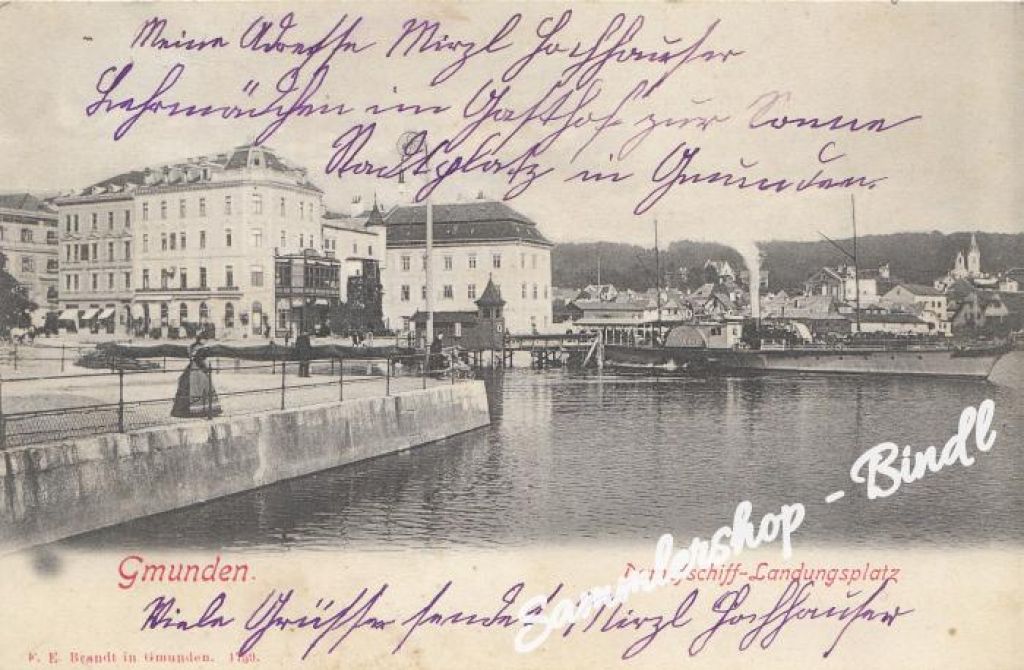 Meine Adresse Mirzl Hochhauser
Lehrmädchen im Gasthof zur Sonne
Stadtplatz in Gmunden.
Gmunden.
Dampfschiff-Landungsplatz
Viele Grüsse sendet Mirzl Hochhauser
Sammlershop - Bindl
F. E. Brandt in Gmunden.